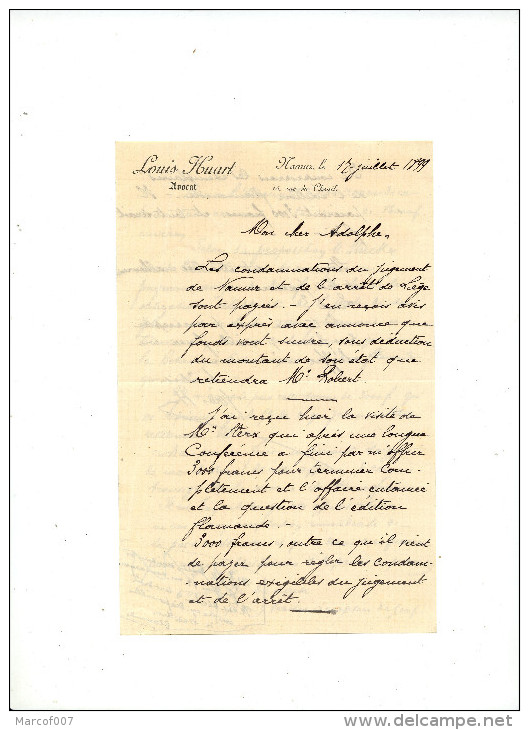 Louis Huart
Avocat
Namur, le 17 juillet 1899
rue du
Mon cher Adolphe,
Les condamnations du jugement
de Namur et de l'arrêt de Liège
sont payées. — J'en reçois avis
par exprès avec annonce que
fonds vont suivre, sous déduction
du montant de son état que
retiendra Mr Robert.
J'ai reçue hier la visite de
Mr qui après une longue
Conférence a fini par m'offrir
3000 francs pour terminer Com-
plètement et l'affaire entamée
et la question de l'édition
flamande. —
3000 francs, outre ce qu'il vient
de payer pour régler les condam-
nations exigibles du jugement
et de l'arrêt.
Marcof007